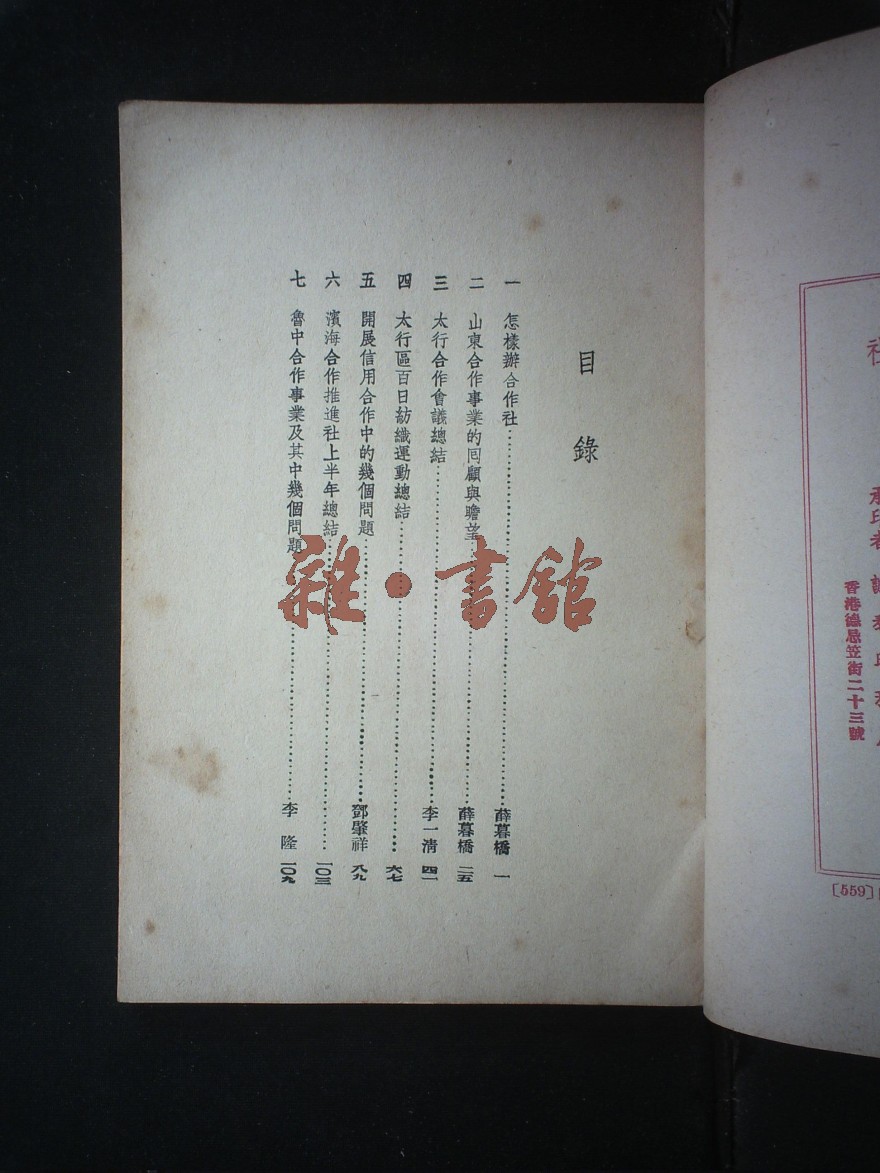 目錄
一 怎樣辦合作社 薛暮橋 一
二 山東合作事業的囘顧與瞻望 薛暮橋 二五
三 太行合作會議總結 李一清 四一
四 太行區百日紡織運動總結 六七
五 開展信用合作中的幾個問題 鄧肇祥 八九
六 濱海合作推進社上半年總結 一〇三
七 魯中合作事業及其中幾個問題 李隆 一〇九
雜·書館
承印者
香港德忌笠街二十三號
[559]